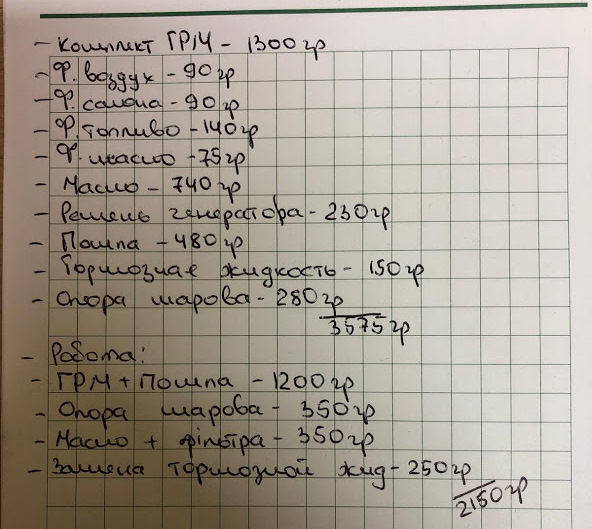 - Комплект ГРМ - 1300 гр
- Ф. воздух - 90 гр
- Ф. салона - 90 гр
- Ф. топливо - 140 гр
- Ф. масло - 75 гр
- Масло - 740 гр
- Ремень генератора - 230 гр
- Помпа - 480 гр
- Тормозная жидкость - 150 гр
- Опора шарова - 280 гр
3575 гр
- Робота:
- ГРМ + Помпа - 1200 гр
- Опора шарова - 350 гр
- Масло + фільтра - 350 гр
- Замена тормозной жид - 250 гр
2150 гр